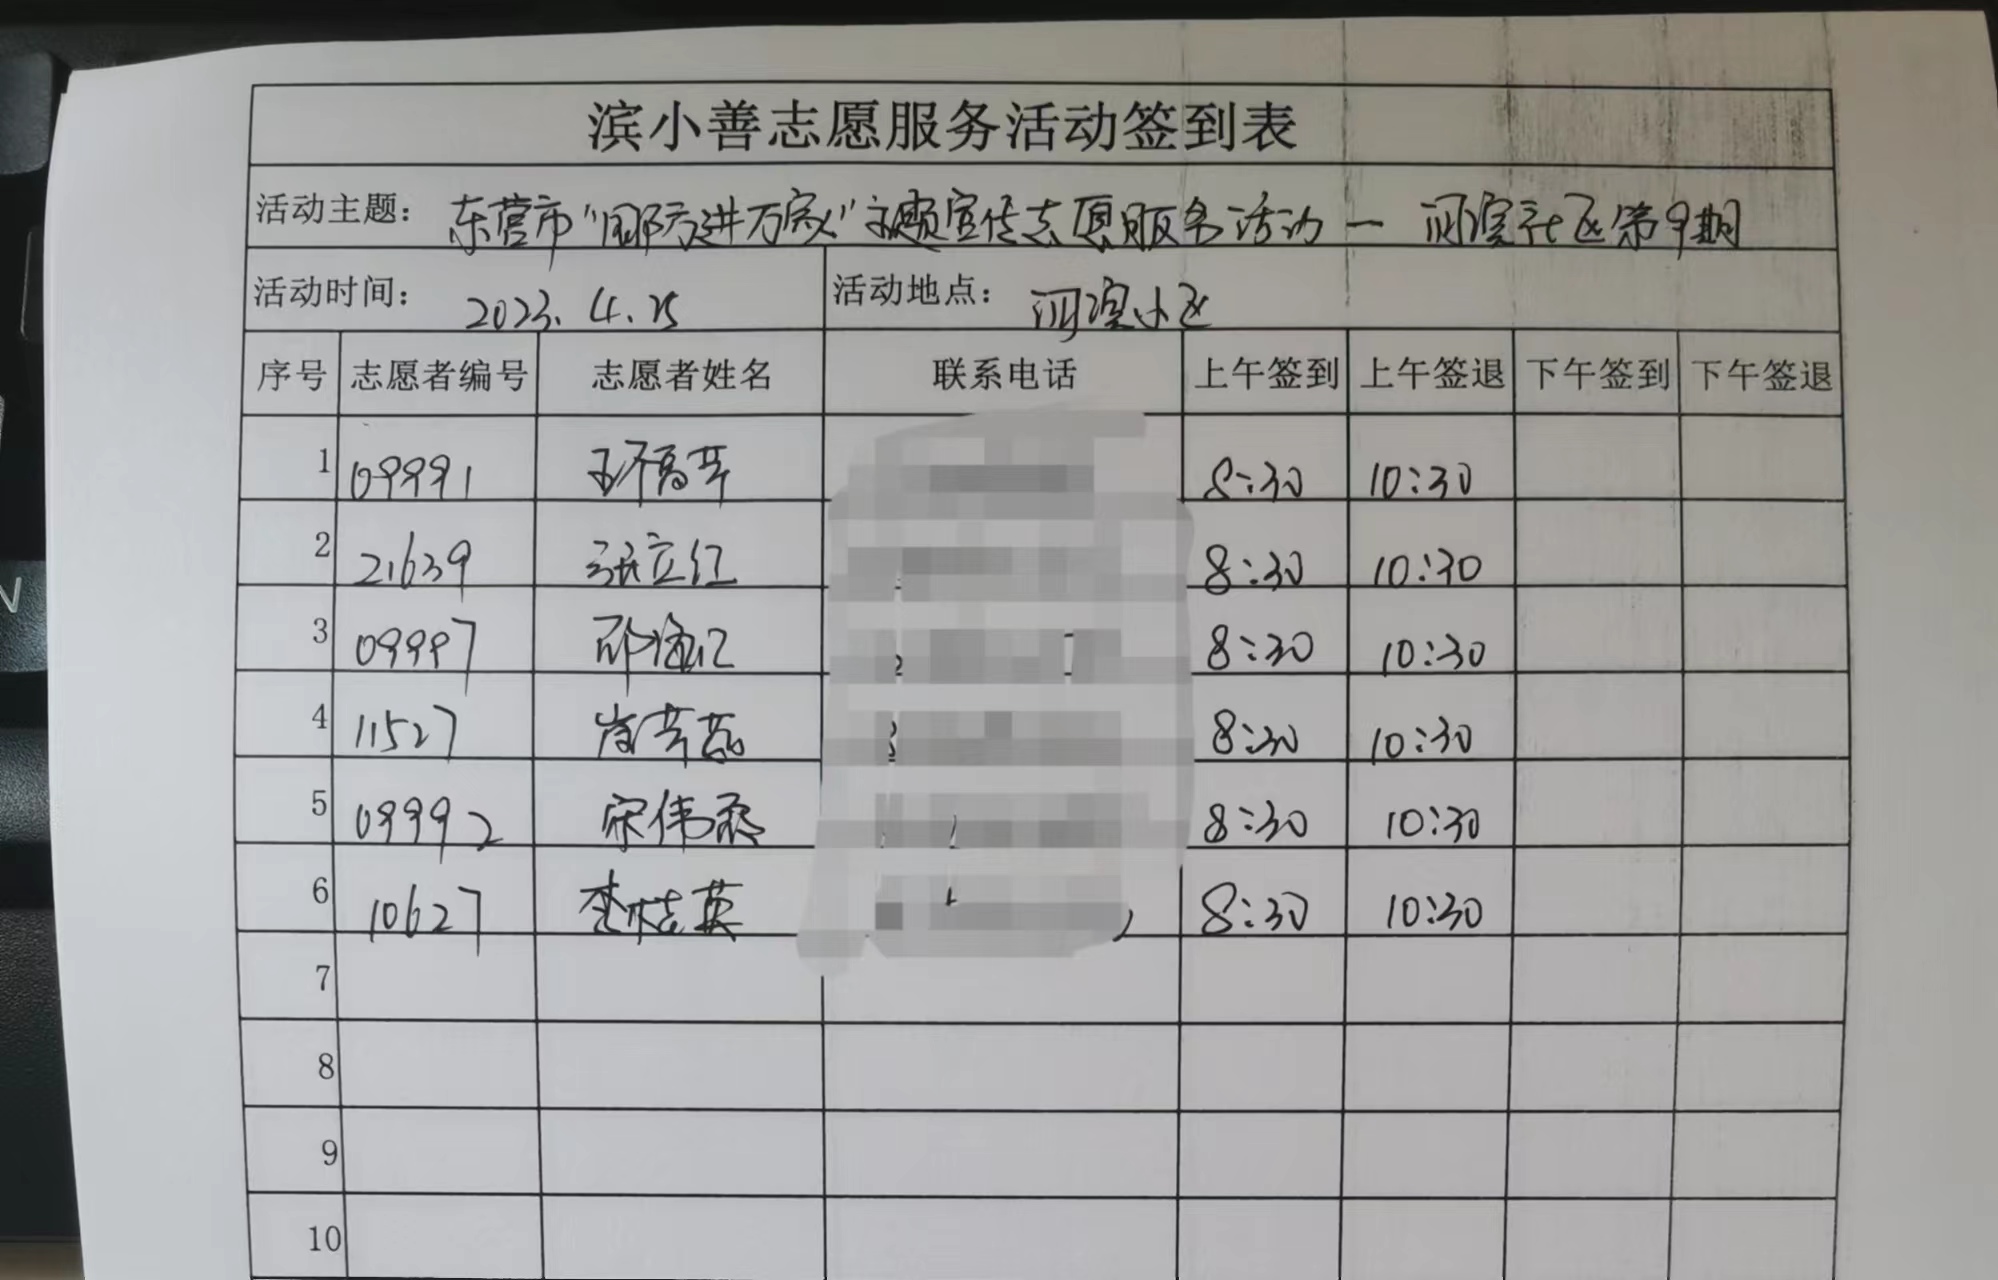 滨小善志愿服务活动签到表
活动主题： 东营市“国防进万家”主题宣传志愿服务活动一 河滨社区第9期
活动时间： 2023.4.25 活动地点： 河滨小区
序号 志愿者编号 志愿者姓名 联系电话 上午签到 上午签退 下午签到 下午签退
1 09991 8:30 10:30
2 21639 张立红 8:30 10:30
3 09997 8:30 10:30
4 11527 8:30 10:30
5 09992 宋伟 8:30 10:30
6 10627 李桂英 8:30 10:30
7
8
9
10